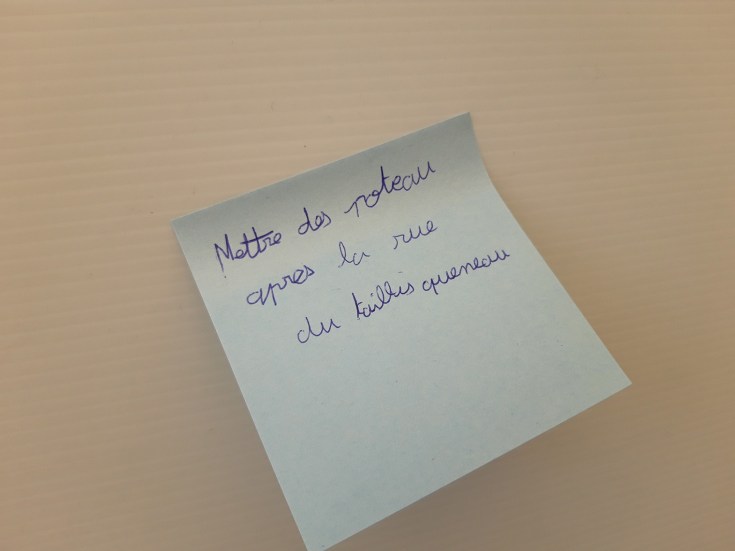 Mettre des poteau
après la rue
du taillis queneau